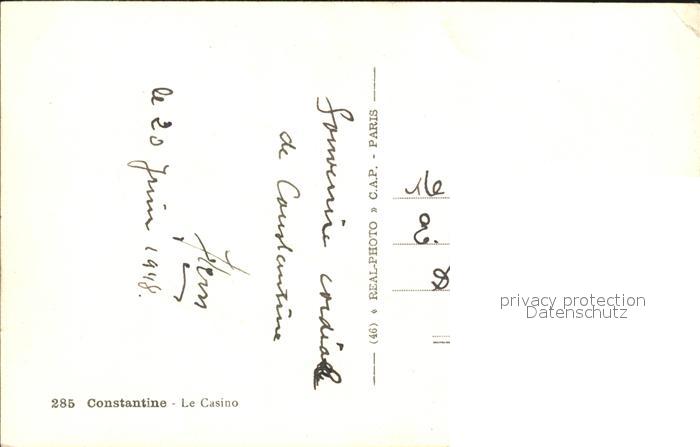 Souvenirs cordiale
de Constantine
le 20 Juin 1948.
(46) « REAL-PHOTO » C.A.P. - PARIS
285 Constantine - Le Casino
privacy protection
Datenschutz